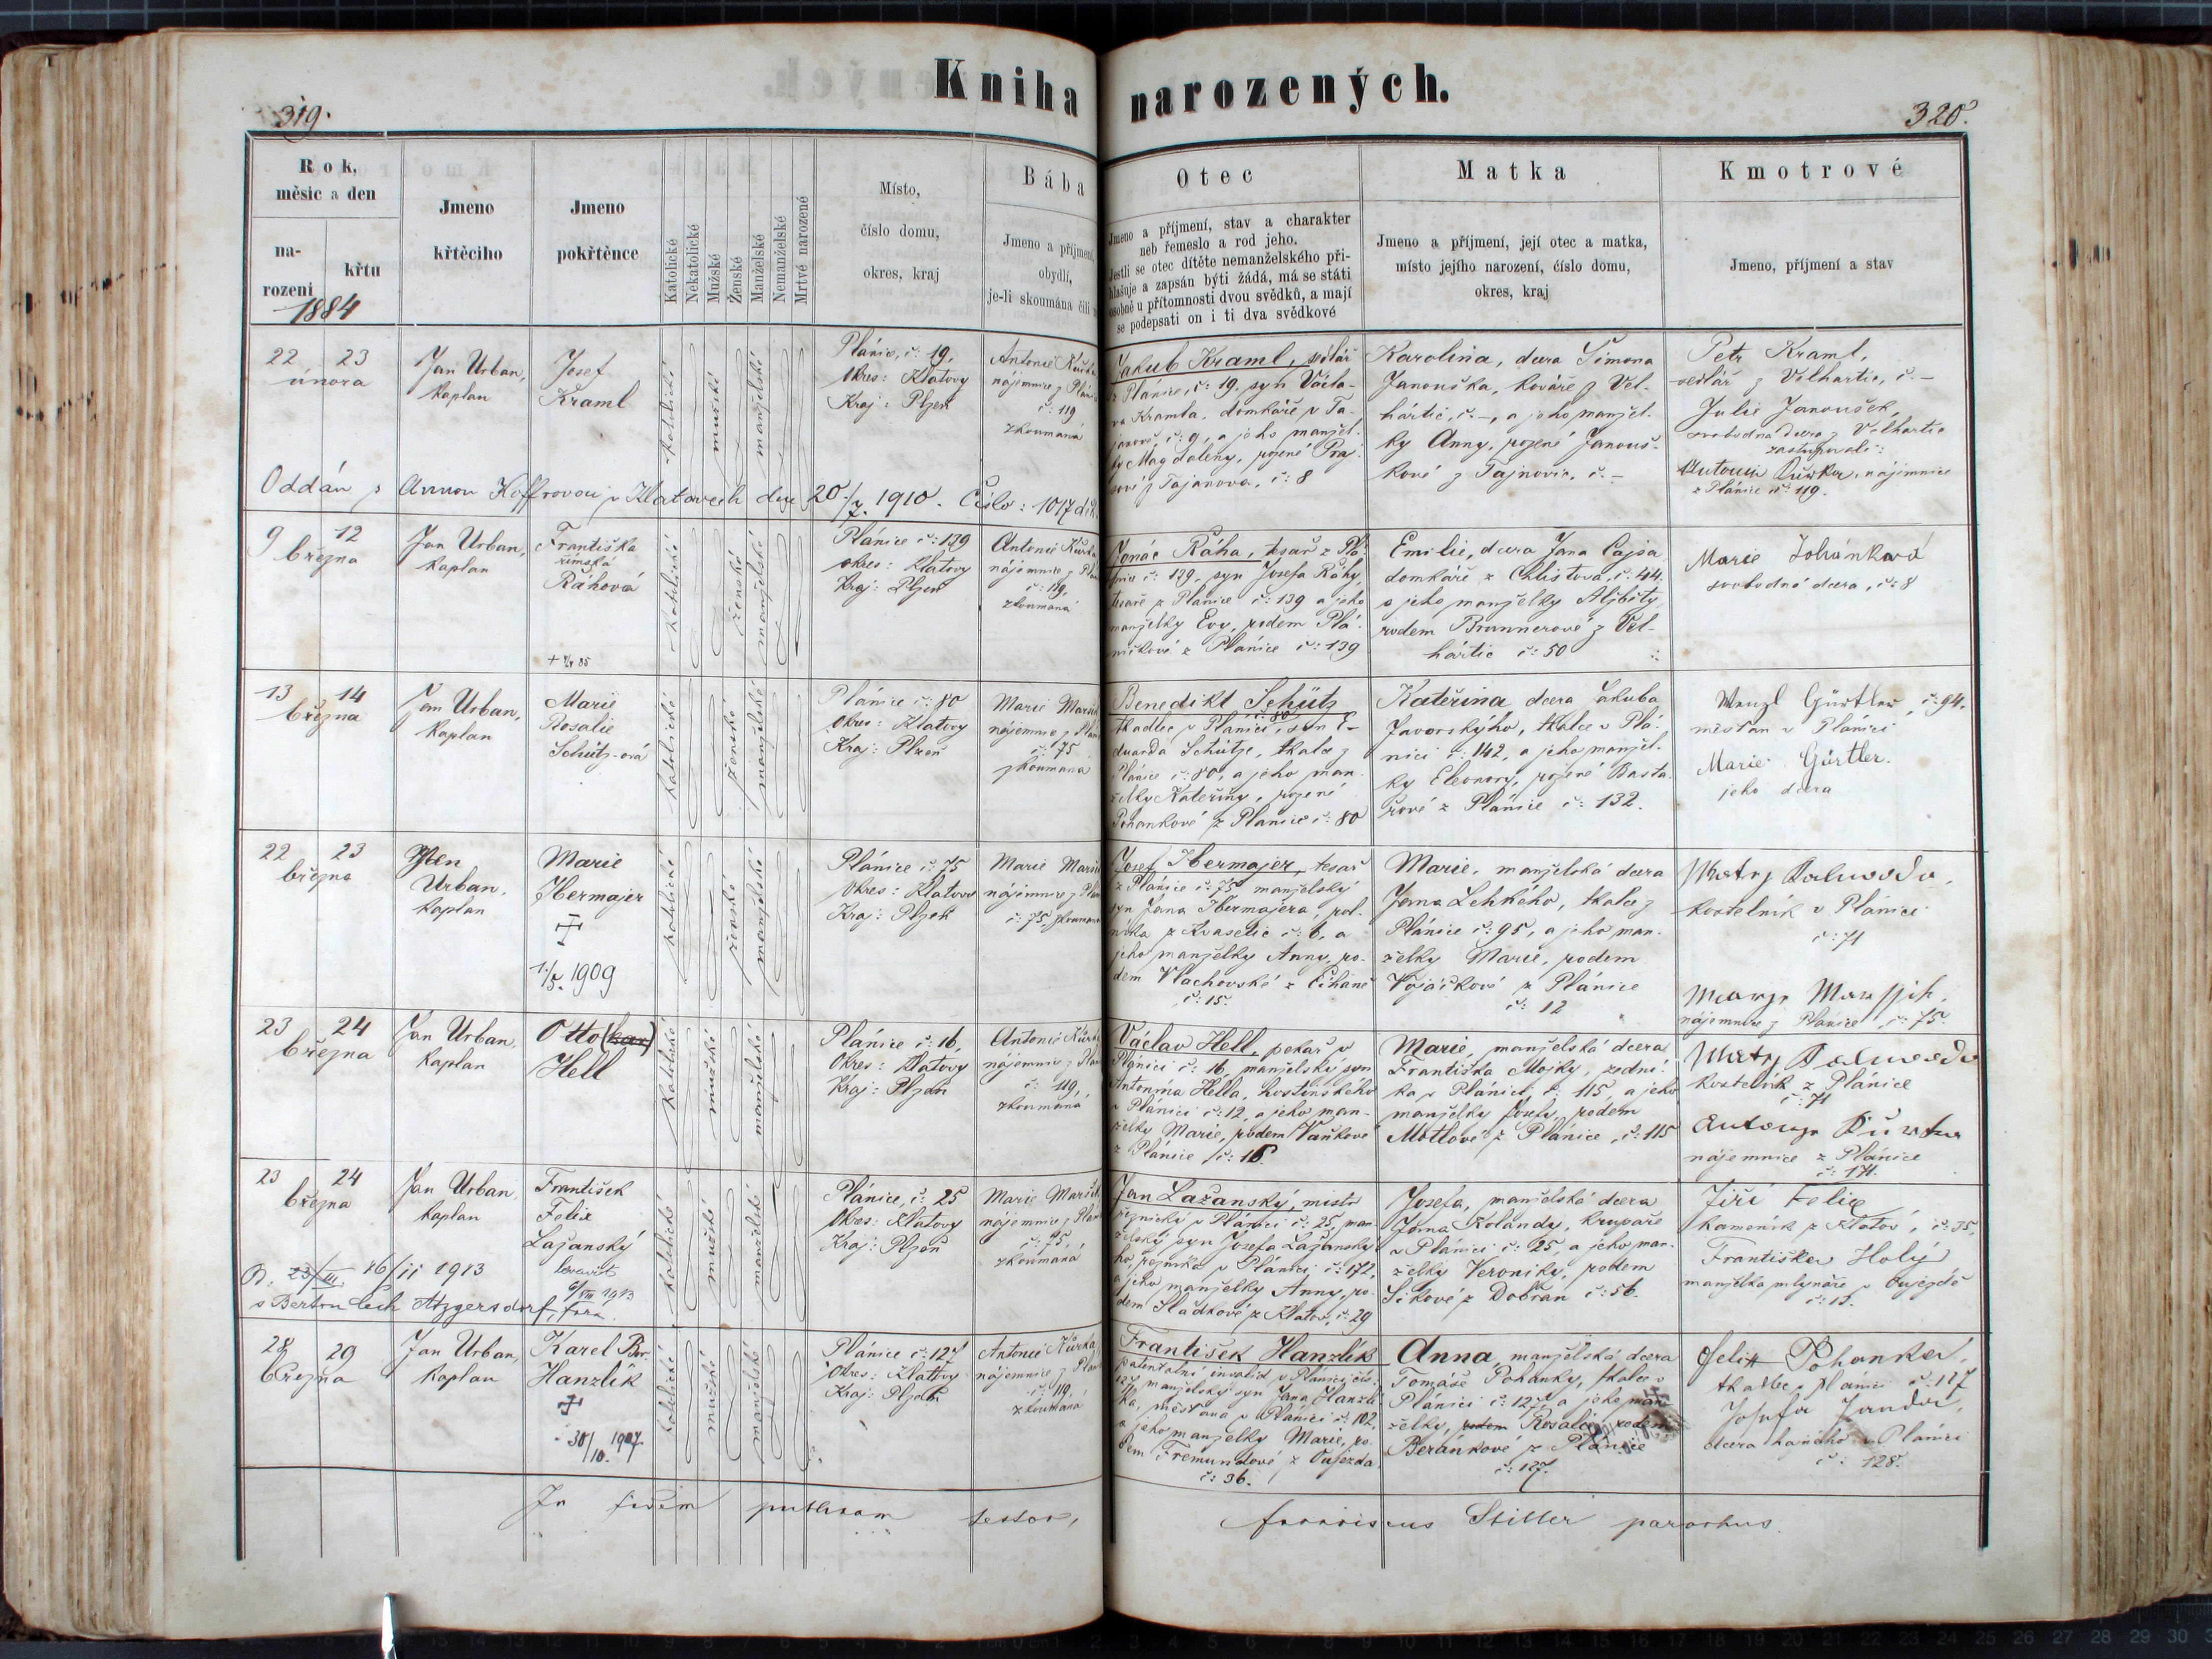 Kniha narozených.
319.
320.
Rok,
měsíc a den
na-
rozeni
křtu
1884
Jmeno
křtěcího
Jmeno
pokřtěnce
Katolické
Nekatolické
Mužské
Ženské
Manželské
Nemanželské
Mrtvé narozené
Místo,
číslo domu,
okres, kraj
Bába
Jmeno a příjmení,
obydlí,
je-li skoumána čili
Otec
Jmeno a příjmení, stav a charakter
neb řemeslo a rod jeho.
Jestli se otec dítěte nemanželského při-
hlašuje a zapsán býti žádá, má se státi
osobně u přítomnosti dvou svědků, a mají
se podepsati on i ti dva svědkové
Matka
Jmeno a příjmení, její otec a matka,
místo jejího narození, číslo domu,
okres, kraj
Kmotrové
Jmeno, příjmení a stav
22 23
února
Jan Urban,
kaplan
Josef
Kraml
katolické
mužské
manželské
Plánic, č: 19.
Okres: Klatovy
Kraj: Plzeň
Antonie Kůrka
nájemnice z Plánic
č: 119
zkoumaná
Jakub Kraml, sedlář
z Plánice, č: 19, syn Václa-
va Kramla, domkáře v Ta-
janově, č: 9, a jeho manžel-
ky Magdaleny, rozené
z Tajanova, č: 8
Karolina, dcera Šimona
Janouška, kováře z Vel-
hartic, č. –, a jeho manžel-
ky Anny, rozené Janouš-
kové z Tajnovic, č. –
Petr Kraml,
sedlář z Velhartic, č. –
Julie Janoušek,
svobodná dcera z Velhartic
zastupovali:
Antonie Kůrka, nájemnice
z Plánice č: 119.
Oddán s Annou Hoffrovou v Klatovech dne 20./7. 1910. Číslo: 1017
9 12
března
Jan Urban,
kaplan
Františka
římská
Ráhová
katolické
ženské
manželské
Plánice č: 139
okres: Klatovy
Kraj: Plzeň
Antonie Kůrka
nájemnice z Plán
č: 119,
zkoumaná
Ignác Ráha, tesař z Plá-
nice č: 139, syn Josefa Ráhy,
tesaře z Plánice č: 139 a jeho
manželky Evy, rodem Plá-
ničkové z Plánice č: 139
Emilie, dcera Jana Cajsa
domkáře z Chlistova, č: 44.
a jeho manželky Alžběty
rodem Brunnerové z Vel-
hartic č: 50
Marie
svobodná dcera, č: 8
13 14
března
Jan Urban,
kaplan
Marie
Rosalie
Schütz-ová
katolické
ženské
manželské
Plánice č: 80
Okres: Klatovy
Kraj: Plzeň
Marie
nájemnice z Plán
č: 75
zkoumaná
Benedikt Schütz
tkadlec v Plánici, č: 80 syn E-
duarda Schütze, tkalce z
Plánice č: 80, a jeho man-
želky Kateřiny, rozené
Pohankové z Plánice č: 80
Kateřina dcera Jakuba
Javorského, tkalce v Plá-
nici č: 142, a jeho manžel-
ky Eleonory, rozené Basta-
řové z Plánice č: 132.
Wenzl Gürtler, č: 94.
měšťan v Plánici
Marie Gürtler.
jeho dcera
22 23
března
Jan
Urban,
kaplan
Marie
Hermajer
1./5. 1909
katolické
ženské
manželské
Plánice č: 75
Okres: Klatovy
Kraj: Plzeň
Marie
nájemnice z Plán
č: 75, zkoumaná
Josef Hermajer, tesař
z Plánice č: 75 manželský
syn Jana Hermajera, rol-
níka z Kvasetic č: 6, a
jeho manželky Anny, ro-
dem Vlachovské z Číhaně
č: 15.
Marie, manželská dcera
Jana Lehkého, tkalce z
Plánice č: 95, a jeho man-
želky Marie, rodem
Vojáčkové z Plánice
č: 12
kostelník v Plánici
č: 71
nájemnice z Plánice č: 75.
23 24
března
Jan Urban,
kaplan
Otto
Hell
katolické
mužské
manželské
Plánice č: 16.
Okres: Klatovy
Kraj: Plzeň
Antonie Kůrka
nájemnice z Plán
č: 119,
zkoumaná
Václav Hell, pekař v
Plánici č: 16, manželský syn
Antonína Hella, hostinského
v Plánici č: 12, a jeho man-
želky Marie, rodem Vaňkové
z Plánice č: 16.
Marie, manželská dcera
Františka Mojky, zední-
ka v Plánici č: 115, a jeho
manželky Josefy, rodem
Motlové z Plánice, č: 115
kostelník z Plánice
č: 71
nájemnice z Plánice
23 24
března
Jan Urban,
kaplan
František
Felix
Lažanský
katolické
mužské
manželské
Plánice, č: 25
Okres: Klatovy
Kraj: Plzeň
Marie
nájemnice z Plán
č: 75,
zkoumaná
Jan Lažanský, mistr
řeznický v Plánici č: 25, man-
želský syn Josefa Lažanské-
ho, řezníka v Plánici č: 172,
a jeho manželky Anny, ro-
dem Sladkové z Klatov, č: 29
Josefa, manželská dcera
Jana Kolandy, krupaře
v Plánici č: 25, a jeho man-
želky Veroniky, rodem
Sikové z Dobřan č: 56.
Jiří Felix
kameník z Klatov, č: 35,
Františka Holý
manželka mlynáře v Oujezdě
č: 13.
16/II 1913
Atzgersdorf, fara.
28 29
března
Jan Urban,
kaplan
Karel Bor.
Hanzlík
30/10. 1907
katolické
mužské
manželské
Plánice č: 127
Okres: Klatovy
Kraj: Plzeň
Antonie Kůrka
nájemnice z Plán
č: 119,
zkoumaná
František Hanzlík
patentalní invalid v Plánici čís:
127, manželský syn Jana Hanzlí-
ka, měšťana v Plánici č: 102,
a jeho manželky Marie, ro-
dem Fremundové z Oujezda
č: 36.
Anna, manželská dcera
Tomáše Pohanky, tkalce v
Plánici č: 127, a jeho man-
želky, Rosalie, rodem
Beránkové z Plánice
č: 127.
Felix Pohanka,
tkadlec v Plánici č: 127
Josefa Jandová,
dcera v Plánici
č: 128.
In fidem publicam testor,
Franciscus Stiller parochus.